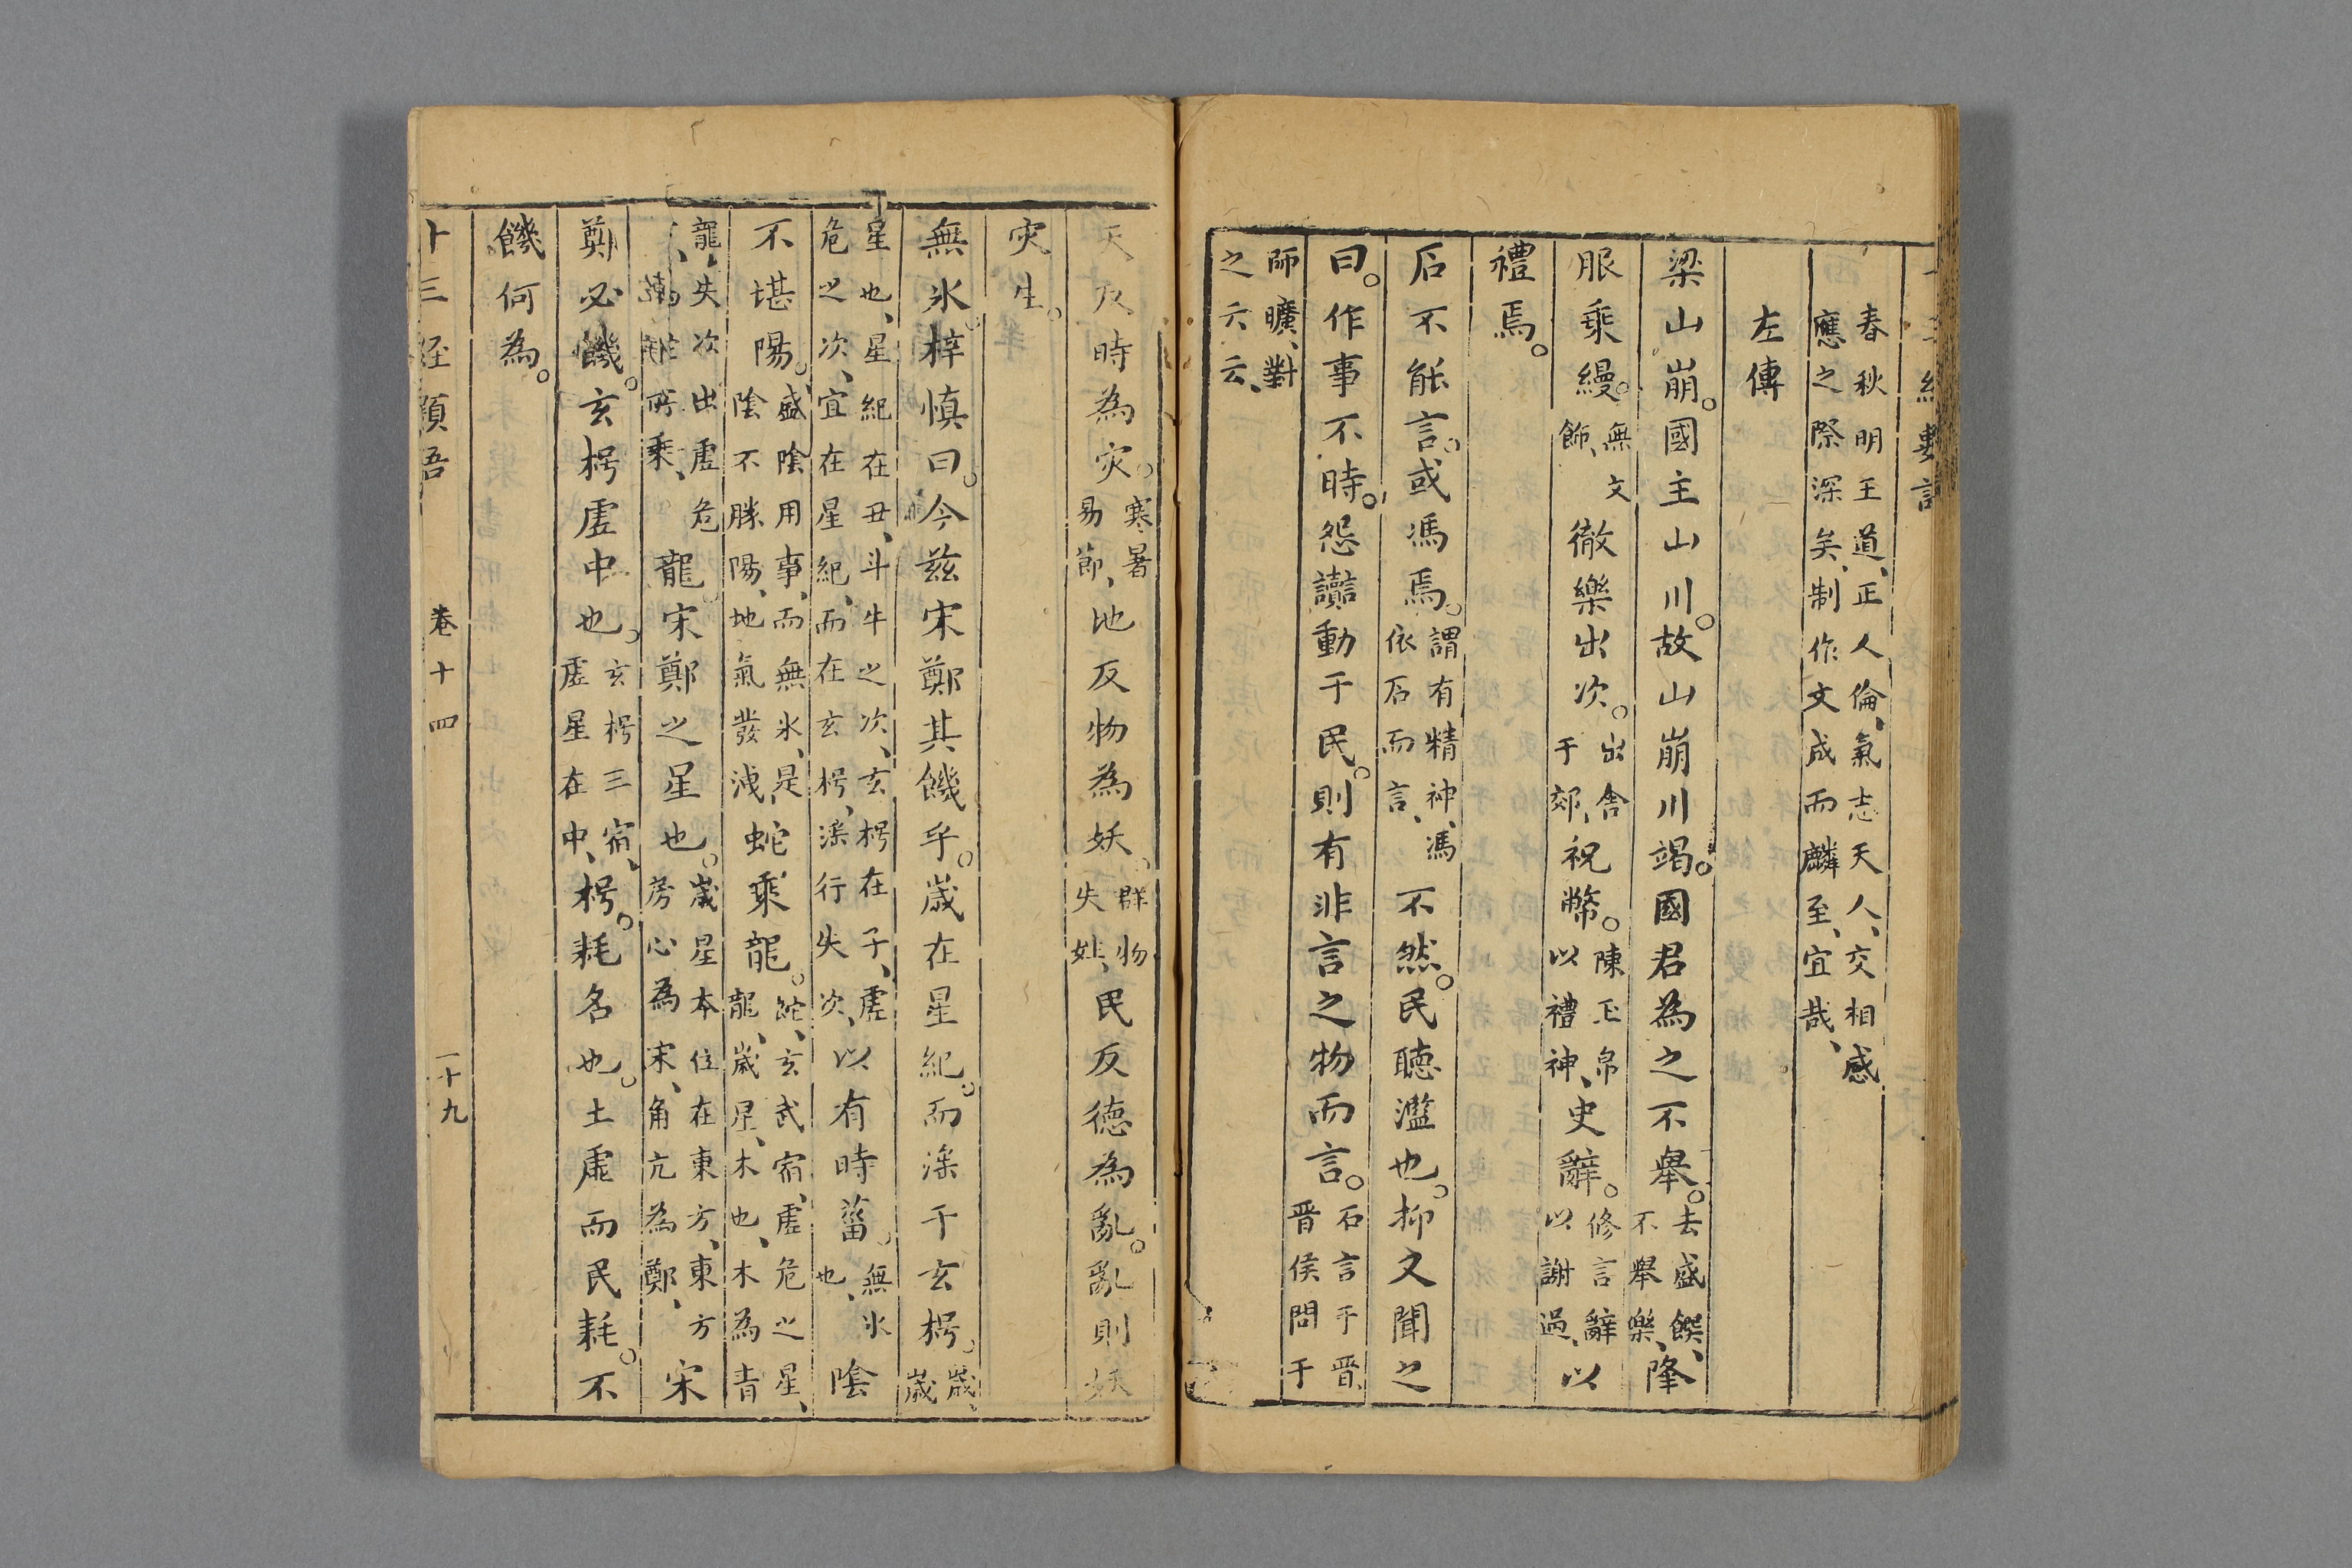 春秋明王道、正人倫、氣志天人、交相感
應之際深矣、制作文成而麟至、宜哉、
左傳
梁山崩。國主山川。故山崩川竭。國君為之不舉。去盛饌、不舉樂、降
服乘縵。無文飾、徹樂出次。出舍于郊、祝幣。陳玉帛以禮神、史辭。修言辭以謝過、以
禮焉。
石不能言。或馮焉。謂有精神、馮依石而言、不然。民聽濫也。抑又聞之
曰。作事不時。怨讟動于民。則有非言之物而言。石言于晉、晉侯問于
師曠、對之云云、
天反時為灾。寒暑易節、地反物為妖。群物失性、民反德為亂。亂則妖
灾生。
無氷。梓慎曰。今茲宋鄭其饑乎。歲在星紀。而淫于玄枵。歲、歲
星也、星紀在丑、斗牛之次、玄枵在子、虛危之次、宜在星紀、而在玄枵、淫行失次、以有時菑。無氷也、陰
不堪陽。盛陰用事、而無氷、是陰不勝陽、地氣發洩、蛇乘龍。蛇、玄武宿、虛危之星、龍、歲星、木也、木為青
龍、失次出虛危、所乘、龍。宋鄭之星也。歲星本位在東方、東方房心為宋、角亢為鄭、宋
鄭必饑。玄枵虛中也。玄枵三宿、虛星在中、枵。耗名也。土虛而民耗。不
饑何為。
十三經類吾 卷十四 一十九